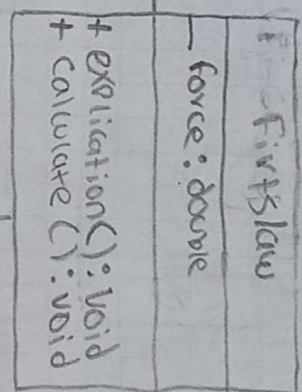 FirtsLaw
- force: double
+ explication(): void
+ calculate(): void